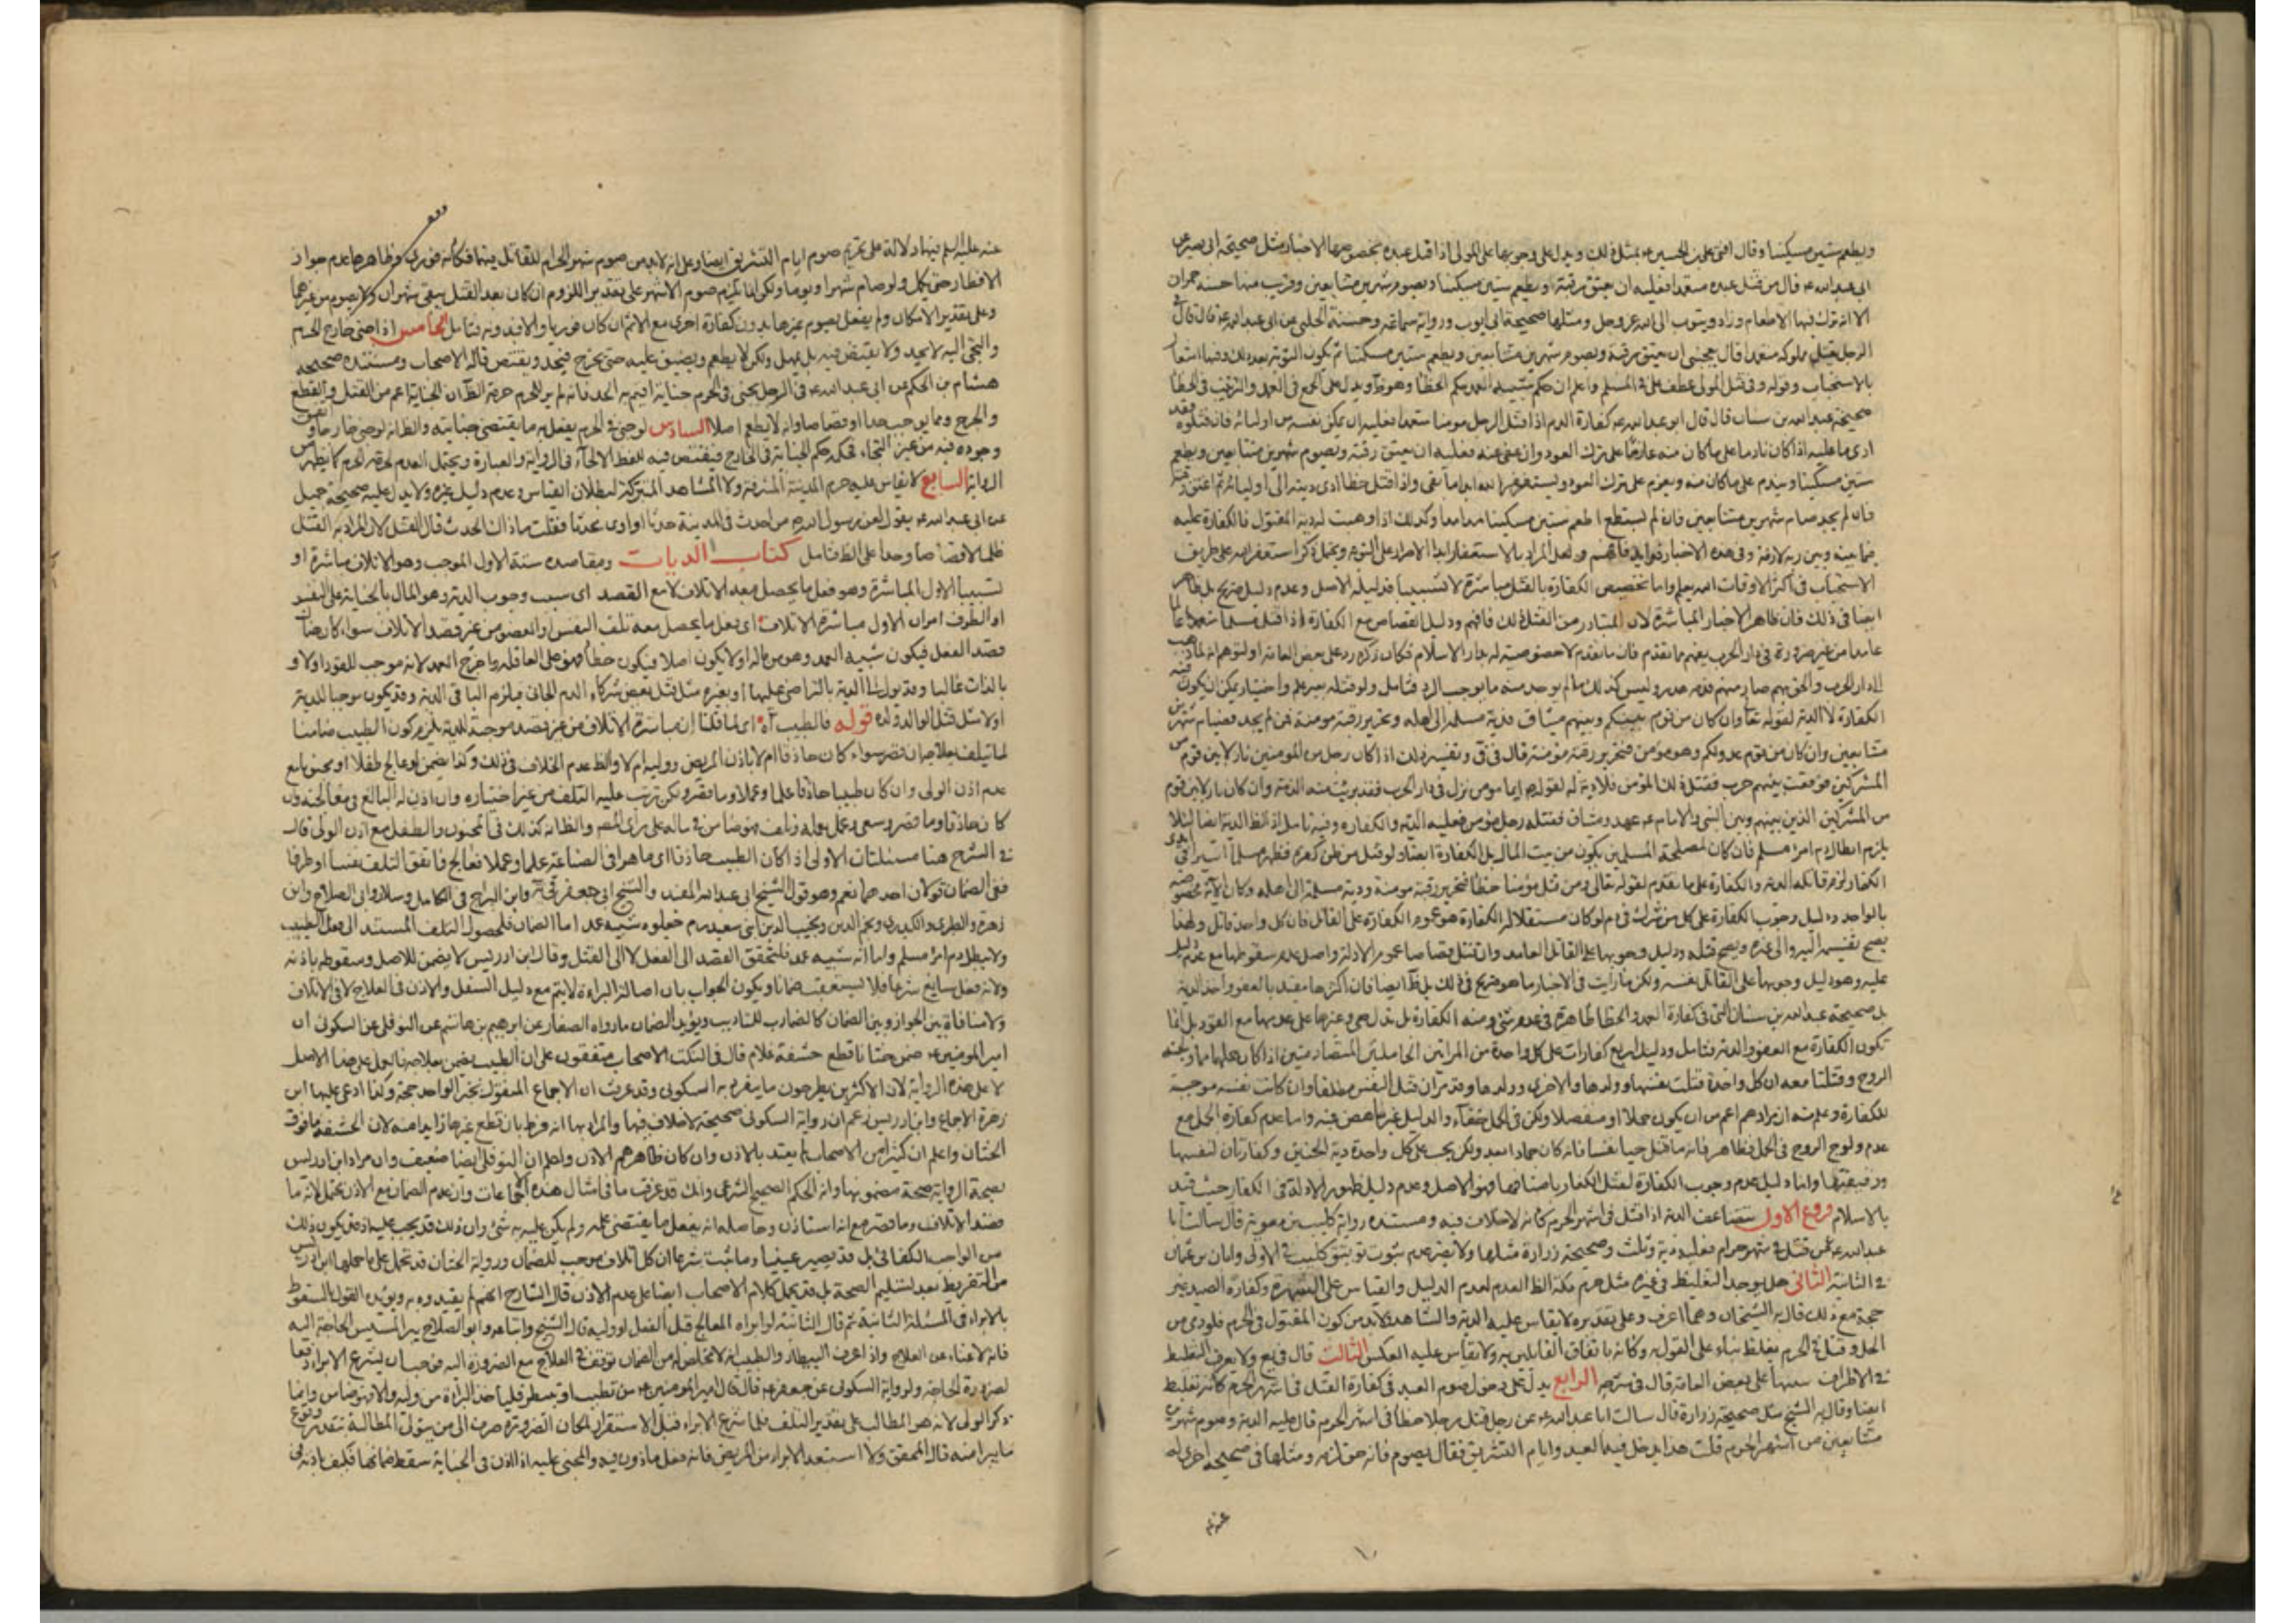 ويطعم ستين مسكينا وقال افتى علي بن الحسين ع بمثل ذلك ويدل على وجوبها على المولى اذا قتل عبده بخصوصها الاخبار مثل صحيحة ابي بصير عن
ابي عبد الله ع قال من قتل عبده متعمدا فعليه ان يعتق رقبة او يطعم ستين مسكينا ويصوم شهرين متتابعين وقريب منها حسنة حمران
الا انه ترك فيها الاطعام وزاد ويتوب الى الله عز وجل ومثلها صحيحة ابي ايوب ورواية سماعة وحسنة الحلبي عن ابي عبد الله ع قال قال في
الرجل يقتل مملوكه متعمدا قال يعجبني ان يعتق رقبة ويصوم شهرين متتابعين ويطعم ستين مسكينا ثم يكون التوبة بعد ذلك وفيها اشعار
بالاستحباب وقوله وفي قتل المولى عطف على المسلم واعلم ان حكم شبيه العمد حكم الخطأ وهو ظ ويدل على الجمع في العمد والترتيب في الخطأ
صحيحة عبد الله بن سنان قال قال ابو عبد الله ع كفارة الدم اذا قتل الرجل مومنا متعمدا فعليه ان يمكن نفسه من اوليائه فان قتلوه فقد
ادى ما عليه اذا كان نادما على ما كان منه عازما على ترك العود وان عفي عنه فعليه ان يعتق رقبة ويصوم شهرين متتابعين ويطعم
ستين مسكينا ويندم على ما كان منه ويعزم على ترك العود ويستغفر الله ابدا ما بقي واذا قتل خطأ ادى ديته الى اوليائه ثم اعتق رقبة
فان لم يجد صام شهرين متتابعين فان لم يستطع اطعم ستين مسكينا مدا مدا وكذلك اذا وهبت له دية المقتول فالكفارة عليه
فيما بينه وبين ربه لازمة وفي هذه الاخبار فوايد فافهم ولعل المراد بالاستغفار ابدا الاصرار على التوبة ويحتمل ذكر استغفر الله على طريق
الاستحباب في اكثر الاوقات الله يعلم واما تخصيص الكفارة بالقتل مباشرة لا تسبيبا فدليله الاصل وعدم دليل صريح بل ظاهر
ايضا في ذلك فان ظاهر الاخبار المباشرة لان المتبادر من القتل ذلك فافهم ودليل القصاص مع الكفارة اذا قتل مسلما متعمدا عالما
عامدا من غير ضرورة في دار الحرب يعلم مما تقدم فان ما تقدم لا خصوصية له بدار الاسلام فكان ذكره رد على بعض العامة او لتوهم انه لما ذهب
الى دار الحرب والحق بهم صار منهم فدمه هدر وليس كذلك ما لم يوجد منه ما يوجب الرد فتامل ولو قتله بغير علم واختيار يمكن ان يكون فيه
الكفارة لا الدية لقوله تعا وان كان من قوم بينكم وبينهم ميثاق فدية مسلمة الى اهله وتحرير رقبة مومنة فمن لم يجد فصيام شهرين
متتابعين وان كان من قوم عدو لكم وهو مومن فتحرير رقبة مومنة قال في ق وتفسير ذلك اذا كان رجل من المومنين نازلا بين قوم من
المشركين فوقعت بينهم حرب فقتل ذلك المومن فلا دية له لقوله ص ايما مومن نزل في دار الحرب فقد برئت منه الذمة وان كان نازلا بين قوم
من المشركين الذين بينهم وبين النبي والامام ع عهد وميثاق فقتله رجل مومن فعليه الدية والكفارة وفيه تامل اذ الظ الدية ايضا لئلا
يلزم ابطال دم امرئ مسلم فان كان لمصلحة المسلمين يكون من بيت المال بل الكفارة ايضا ولو قتل من ظن كفره فظهر مسلما اسيرا في ايدي
الكفار لزم قاتله الدية والكفارة على ما تقدم لقوله تعالى ومن قتل مؤمنا خطأ فتحرير رقبة مومنة ودية مسلمة الى اهله وكان الاية مخصوصة
بالواحد ودليل وجوب الكفارة على كل من شرك في دم لو كان مستقلا لزم الكفارة هو عموم الكفارة على القاتل فان كل واحد قاتل ولهذا
يصح تقسيمه اليه والى غيره ويصح قتله ودليل وجوبها على القاتل العامد وان قتل قصاصا عموم الادلة واصل عدم سقوطها مع عدم دليل
عليه وهو دليل وجوبها على القاتل نفسه ولكن ما رايت في الاخبار ما هو صريح في ذلك بل ظ ايضا فان اكثرها مقيد بالعفو واخذ الدية
بل صحيحة عبد الله بن سنان التي في كفارة العمد والخطأ ظاهرة في عدم شئ ومنه الكفارة بل تدل هي وغيرها على عدمها مع القود بل انما
تكون الكفارة مع العفو والدية فتامل ودليل اربع كفارات على كل واحدة من المراتين الحاملتين المتصادمتين اذا كان حملهما مما ولجته
الروح وقتلتا معه ان كل واحدة قتلت نفسها وولدها والاخرى وولدها وقد مر ان قتل النفس مطلقا وان كانت نفسه موجبة
للكفارة وعلمت ان مرادهم اعم من ان يكون حملا او منفصلا ولكن في الحمل خفاء والدليل غير ناهض فيه واما عدم كفارة الحمل مع
عدم ولوج الروح في الحمل فظاهر فانه ما قتل حيا نفسا فانه كان جمادا بعد ولكن يجب على كل واحدة دية الجنين وكفارتان لنفسها
ورفيقتها واما دليل عدم وجوب الكفارة لقتل الكفار باصنافها فهو الاصل وعدم دليل ظهور الادلة في الكفار حيث قيد
بالاسلام فروع الاول يتضاعف الدية اذا قتل في اشهر الحرم كانه لا خلاف فيه ومستنده رواية كليب بن معوية قال سالت ابا
عبد الله ع عمن قتل في شهر حرام فعليه دية وثلث وصحيحة زرارة مثلها ولا يضر عدم ثبوت توثيق كليب في الاولى وابان بن عثمان
في الثانية الثاني هل يوجد التغليظ في غيره مثل حرم مكة الظ العدم لعدم الدليل والقياس على الشهرة وكفارة الصيد غير
حجة مع ذلك قال به الشيخان وهما اعرف وعلى تقديره لا يقاس عليه الدية والمشاهد فلا بد من كون المقتول في الحرم فلو رمى من
الحل وقتل في الحرم يغلظ بناء على القول به وكانه باتفاق القايلين به ولا يقاس عليه العكس الثالث قال في يع ولا يعرف التغليظ
في الاطراف تنبيها على بعض العامة قال في شرحه الرابع يدل على دخول صوم العيد في كفارة القتل في اشهر الحرم كانه تغليظ
ايضا وقال به الشيخ مثل صحيحة زرارة قال سالت ابا عبد الله ع عن رجل قتل رجلا خطأ في اشهر الحرم قال عليه الدية وصوم شهرين
متتابعين من اشهر الحرم قلت هذا يدخل فيه العيد وايام التشريق فقال يصوم فانه حق لزمه ومثلها في صحيحة اخرى له
عنه ع
عنه عليه السلم فيها دلالة على تحريم صوم ايام التشريق ايضا وعلى انه لابد من صوم شهر الحرام للقاتل فيها فكأنه فوري وظاهرها عدم جواز
الافطار حتى يكمل ولو صام شهرا ويوما ولكن انما يلزم صوم الاشهر على تقدير اللزوم ان كان بعد القتل يبقى شهران ولا يصوم من غيرهما
وعلى تقدير الامكان ولم يفعل يصوم غيرها بدون كفارة اخرى مع الاثم ان كان فوريا والا فبدونه فتامل الخامس اذا جنى خارج الحرم
والتجئ اليه لا يحد ولا يقتص فيه بل يمهل ولكن لا يطعم ويضيق عليه حتى يخرج فيحد ويقتص قاله الاصحاب ومستنده صحيحة
هشام بن الحكم عن ابي عبد الله ع في الرجل يجني في الحرم جناية اقيم به الحد فانه لم ير للحرم حرمة الظ ان الجناية اعم من القتل والقطع
والجرح ومما يوجب حدا او قصاصا وانه لا يطعم اصلا السادس لو جنى في الحرم يفعل به ما يقتضي جنايته والظ انه لو جنى خارجا و
وجوده فيه من غير التجاء فحكمه حكم الجناية في الخارج فيقتص فيه للفظ الالجاء في الرواية والعبارة ويحتمل العدم لحرمة الحرم كما يظهر من
الرواية السابع لا يقاس عليه حرم المدينة المشرفة ولا المشاهد المتبركة لبطلان القياس وعدم دليل غيره ولا يدل عليه صحيحة جميل
عن ابي عبد الله ع يقول لعن رسول الله ص من احدث في المدينة حدثا او اوى محدثا فقلت ماذا الحدث قال القتل لان المراد به القتل
ظلما لا قصاصا وحدا على الظ فتامل كتاب الديات ومقاصده ستة الاول الموجب وهو الاتلاف مباشرة او
تسبيبا الاول المباشرة وهو فعل ما يحصل معه الاتلاف لا مع القصد اى سبب وجوب الدية وهو المال بالجناية على النفس
او الطرف امران الاول مباشرة الاتلاف اى فعل ما يحصل معه تلف النفس او العضو من غير قصد الاتلاف سواء كان هناك
قصد الفعل فيكون شبيه العمد وهو من ماله او لا يكون اصلا فيكون خطأ فهو على العاقلة وما خرج العمد لانه موجب للقود اولا و
بالذات غالبا وقد يول الى الدية بالتراضي عليها او بغيره مثل قتل بعض شركاء الدم الجاني فيلزم الباقي الدية وقد يكون موجبا للدية
اولا مثل قتل الوالد ولده قوله فالطبيب آه اى لما قلنا ان مباشرة الاتلاف من غير قصد موجبة للدية يلزم كون الطبيب ضامنا
لما يتلف بعلاجه ان قصر سواء كان حاذقا ام لا باذن المريض ووليه ام لا والظ عدم الخلاف في ذلك وكذا يضمن لو عالج طفلا او مجنونا مع
عدم اذن الولي وان كان طبيبا حاذقا علما وعملا وما قصر ولكن ترتب عليه التلف من غير اختياره وان اذن له البالغ في معالجته و
كان حاذقا وما قصر وسعى وعمل بعلمه وتلف فهو ضامن في ماله على راى المصر والظ انه كذلك في المجنون والطفل مع اذن الولي قال
في الشرح هنا مسئلتان الاولى اذا كان الطبيب حاذقا اى ماهرا في الصناعة علما وعملا فعالج فاتفق التلف نفسا او طرفا
ففي الضمان قولان احدهما نعم وهو قول الشيخ ابي عبد الله المفيد والشيخ ابي جعفر في يه وابن البراج في الكامل وسلار وابي الصلاح وابن
زهرة والطبري والكيدري ونجم الدين ونجيب الدين ابني سعيد وهم جعلوه شبيه عمد اما الضمان فلحصول التلف المستند الى فعل الطبيب
ولا يبطل دم امرئ مسلم واما انه شبيه عمد فلتحقق القصد الى الفعل لا الى القتل وقال ابن ادريس لا يضمن للاصل وسقوطه باذنه
ولانه فعل سايغ شرعا فلا يستعقب ضمانا ويكون الجواب بان اصالة البراءة لا يتم مع دليل الشغل والاذن في العلاج لا في الاتلاف
ولا منافاة بين الجواز وبين الضمان كالضارب للتاديب ويؤيد الضمان ما رواه الصفار عن ابرهيم بن هاشم عن النوفلي عن السكوني ان
امير المومنين ع ضمن ختانا قطع حشفة غلام قال في النكت الاصحاب متفقون على ان الطبيب يضمن بعلاجه فالعمل على هذا الاصل
لا على هذه الرواية لان الاكثرين يطرحون ما ينفرد به السكوني وقد عرفت ان الاجماع المنقول بخبر الواحد حجة وكذا ادعى عليها ابن
زهرة الاجماع وابن ادريس زعم ان رواية السكوني صحيحة لا خلاف فيها والمراد بها انه فرط بان قطع غير ما اريد منه لان الحشفة ما فوق
الختان واعلم ان كثيرا من الاصحاب لم يقيد بالاذن وان كان ظاهرهم الاذن واعلم ان النوفلي ايضا ضعيف وان مراد ابن ادريس
بصحة الرواية صحة مضمونها وانه الحكم الصحيح الشرعي وانك قد عرفت ما في امثال هذه الاجماعات وان عدم الضمان مع الاذن محتمل لانه ما
قصد الاتلاف وما قصر مع انه استاذن وحاصله انه يفعل ما يقتضي علمه ولم يكن عليه به شئ وان ذلك قد يجب عليه اذ قد يكون ذلك
من الواجب الكفائي بل قد يصير عينيا وما ثبت شرعا ان كل اتلاف موجب للضمان ورواية الختان قد تحمل على ما حملها ابن ادريس
من التفريط بعد تسليم الصحة بل قد يحمل كلام الاصحاب ايضا على عدم الاذن قال الشارح انهم لم يقيدوه به ويؤيده القول بالسقوط
بالابراء في المسئلة الثانية ثم قال الثانية لو ابراه المعالج قبل الفعل او وليه قال الشيخ واتباعه وابو الصلاح يبرا لمسيس الحاجة اليه
فانه لا غناء عن العلاج واذا عرف البيطار والطبيب انه لا مخلص له من الضمان توقف في العلاج مع الضرورة اليه فوجب ان يشرع الابراء دفعا
لضرورة الحاجة ولرواية السكوني عن جعفر ع قال قال امير المومنين ع من تطبب او تبيطر فلياخذ البراءة من وليه والا فهو ضامن وانما
ذكر الولي لانه هو المطالب على تقدير التلف فلما شرع الابراء قبل الاستقرار لمكان الضرورة صرف الى من يتولى المطالبة بتقدير وقوع
ما يبرا منه قال المحقق ولا استبعد الابراء من المريض فانه فعل ماذون فيه والمجني عليه اذا اذن في الجناية سقط ضمانها فكيف باذنه في